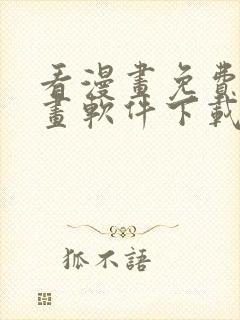 看漫畫免費
畫軟件下載
狐不語